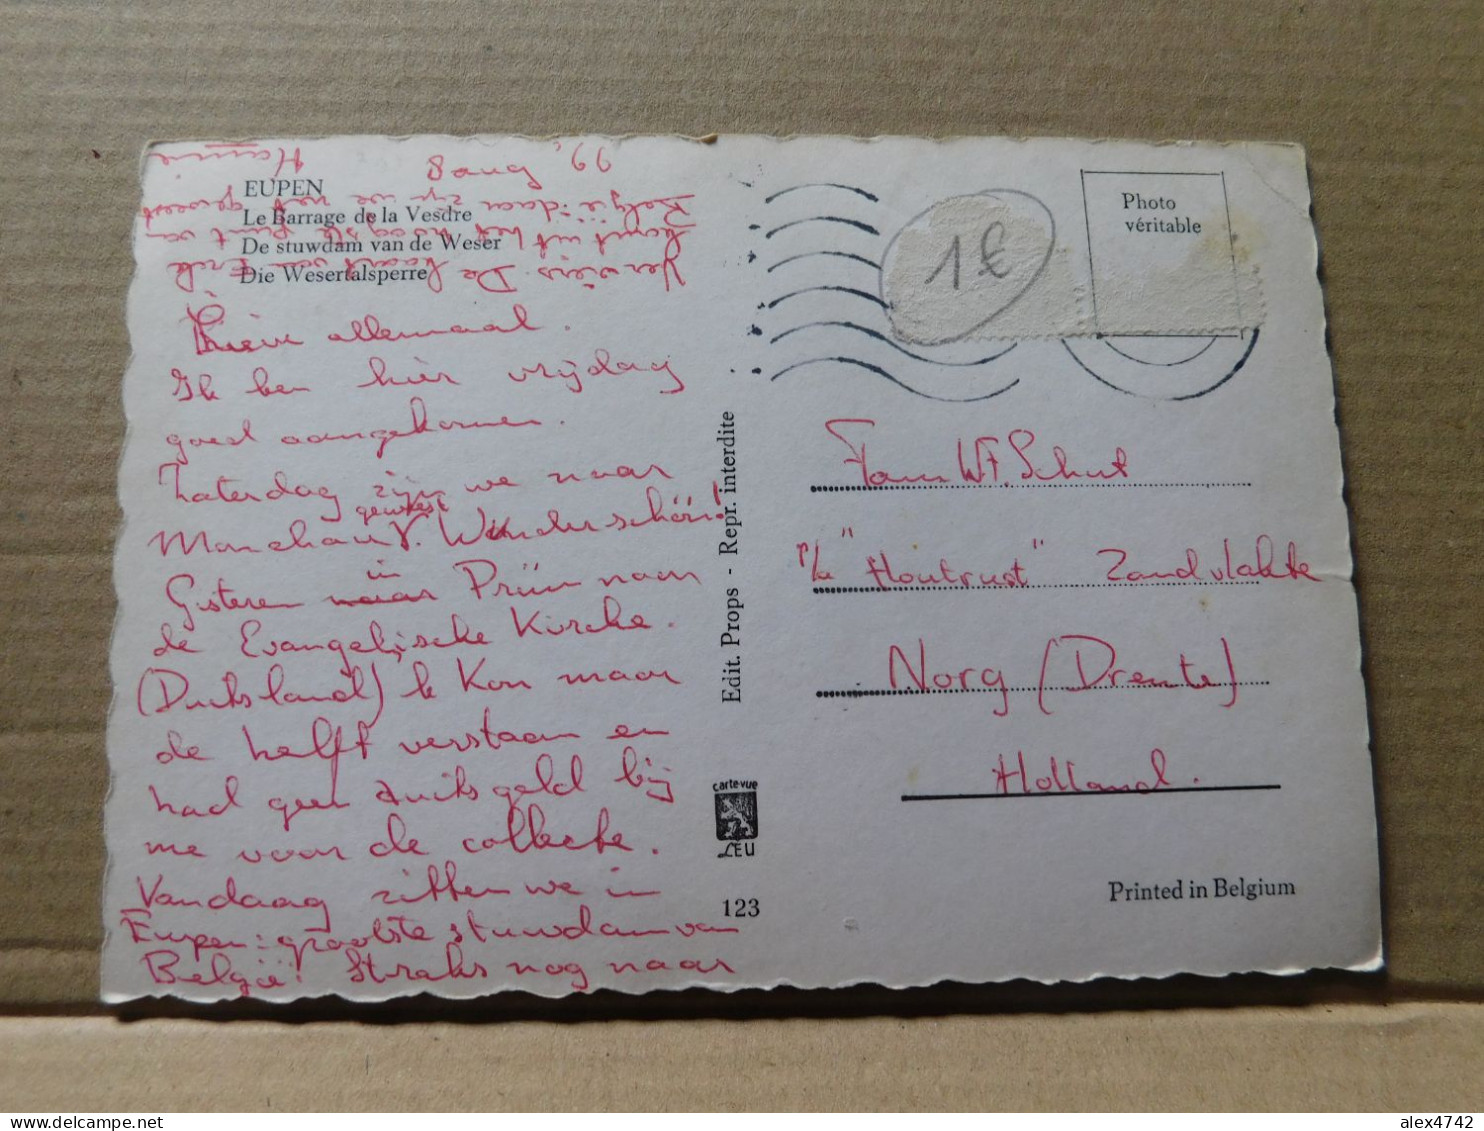 EUPEN
Le Barrage de la Vesdre
De stuwdam van de Weser
Die Wesertalsperre
Lieve allemaal.
Ik ben hier vrijdag
goed aangekomen.
Zaterdag zijn we naar
geweest
Wunderschön!
in
Gisteren naar Prüm naar
de Evangelische Kirche.
(Duitsland) Ik Kon maar
de helft verstaan en
had geen duits geld bij
me voor de collecte.
Vandaag zitten we in
Eupen: grootste stuwdam van
België! Straks nog naar
Verviers. De kaart van Erik
komt uit het hoogste punt van
België: daar zijn we net geweest
8 aug
Hannie
Edit. Props - Repr. interdite
carte-vue
LEU
123
1€
Photo
véritable
Fam W.F. Schut
"Houtrust" Zandvlakte
Norg (Drente)
Holland.
Printed in Belgium
alex4742